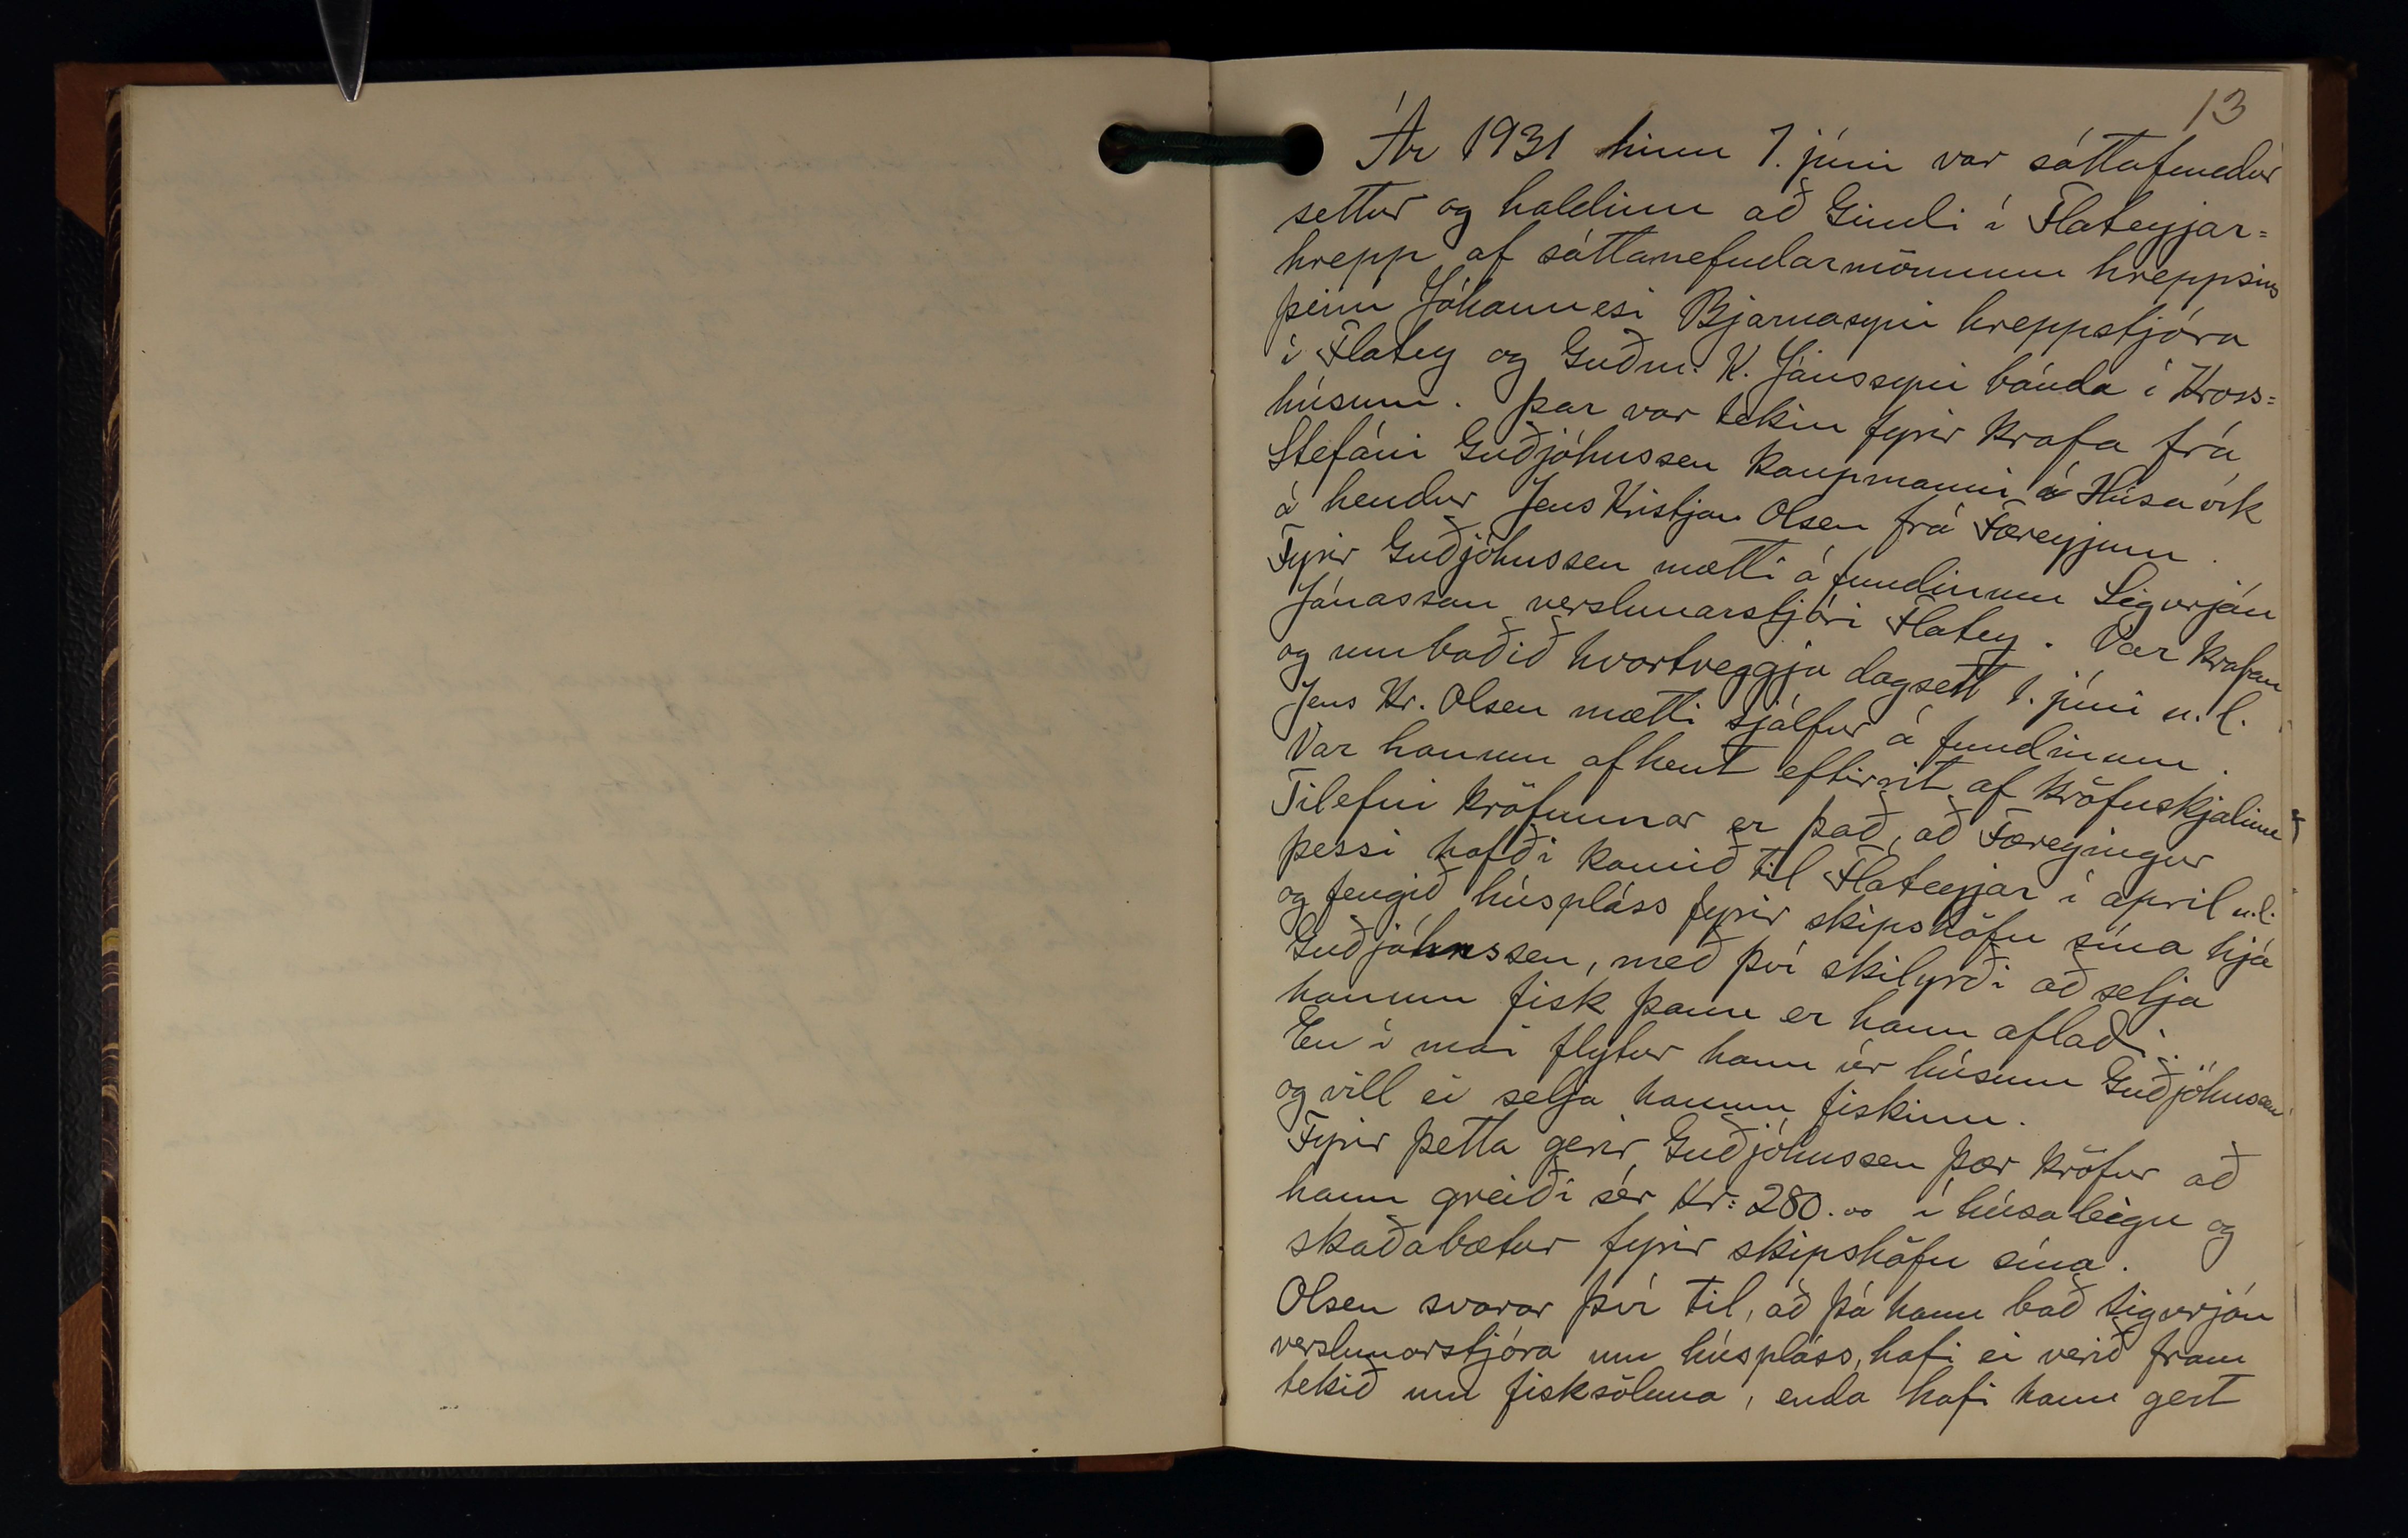 13
Ár 1931 hinn 7. júni var sáttafundur
settur og haldinn að Gimli í Flateyjar=
hrepp af sáttanefndarmönnum hreppsins
þeim Jóhannesi Bjarnasyni hreppstjóra
í Flatey og Guðm. K. Jónssyni bónda í Kross=
húsum. Þar var tekin fyrir krafa frá
Stefáni Guðjóhnssen kaupmanni á Húsavík
á hendur Jens Kristjan Olsen frá Færeyjum.
Fyrir Guðjóhnssen mætti á fundinum Sigurjón
Jónasson verslunarstjóri Flatey. Var krafan
og umboðið hvortveggja dagsett 1. júni n.l.
Jens Kr. Olsen mætti sjálfur á fundinum.
Var honum afhent eftirrit af kröfuskjalinu
Tilefni kröfunnar er það, að Færeyingur
þessi hafði komið til Flateyjar í apríl n.l.
og fengið húspláss fyrir skipshöfn sína hjá
Guðjóhnssen, með því skilyrði að selja
honum fisk þann er hann aflaði.
En í maí flytur hann úr húsum Guðjóhnssen
og vill ei selja honum fiskinn.
Fyrir þetta gerir Guðjóhnssen þær kröfur að
hann greiði sér Kr: 280.00 í húsaleigu og
skaðabætur fyrir skipshöfn sína.
Olsen svarar því til, að þá hann bað Sigurjón
verslunarstjóra um húspláss, hafi ei verið fram
tekið um fisksöluna, enda hafi hann gert